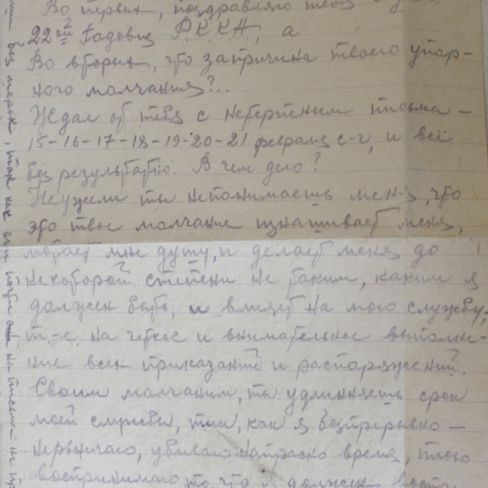 Во первых, поздравляю тебя с
22ой Годовщ РККА, а
Во вторых, что за причина твоего упор-
ного молчания?..
Ждал от тебя с нетерпеньем письма -
15-16-17-18-19-20-21 февраля с-г, и всё
без результатно. В чем дело?
Неужели ты непонимаешь меня, что
это твое молчание изнашивает меня,
мне душу, и делает меня до
некоторой степени не таким, каким я
должен быть, и влияет на мою службу,
т.-е. на четкое и внимательное выполне-
ние всех приказаний и распоряжений.
Своим молчанием, ты удлиняешь срок
моей службы, так, как я безпрерывно -
нервничаю, убиваю напраско время, плохо
воспринимаю то, что я должен